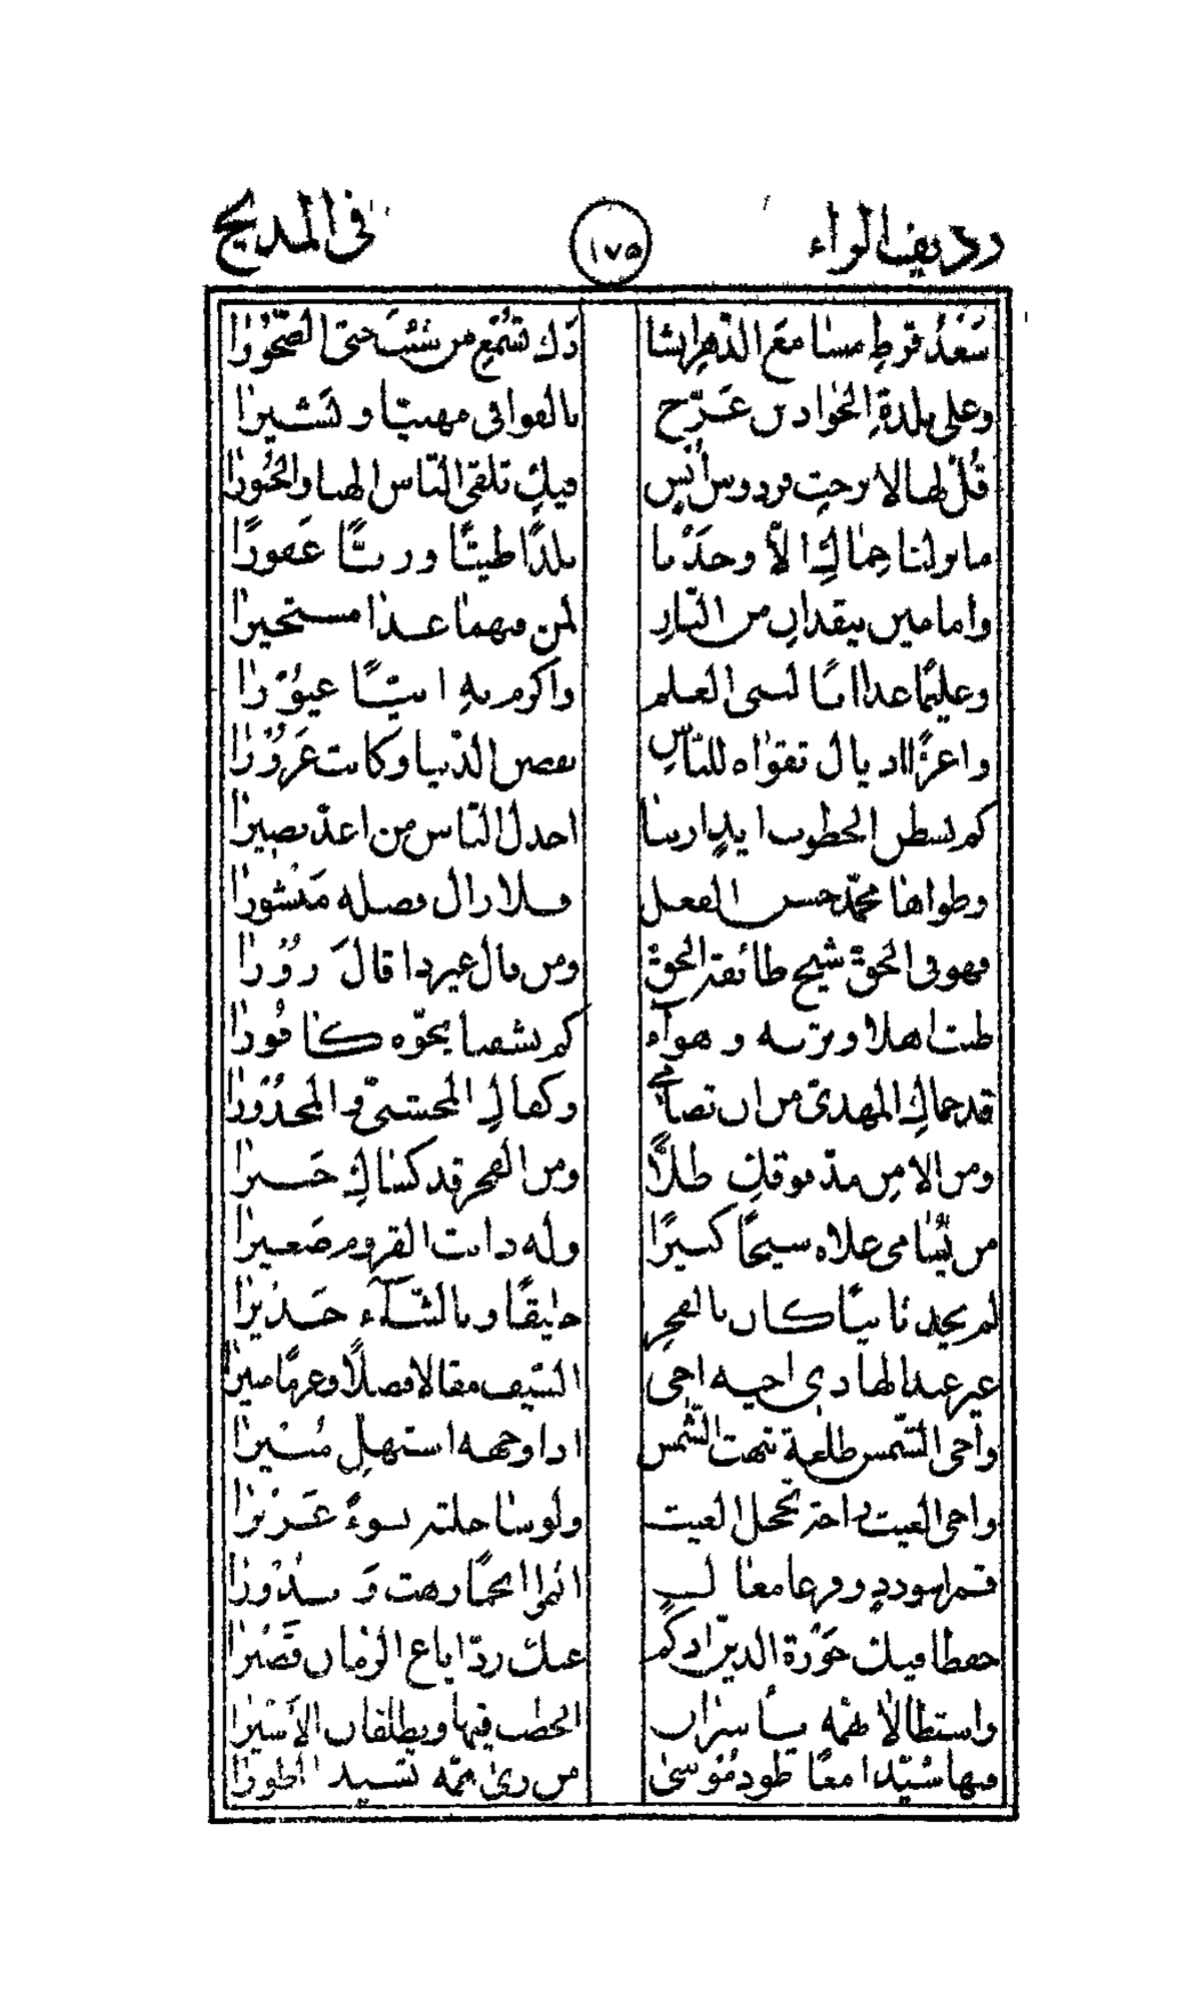 رديف الراء ١٧٥ في المديح
سعد قرط مسامع الدهر إنشا دك تسمع من شئت حتى الصخورا
وعلى بلدة الجوادين عرّج بالقوافي مهنيا وبشيرا
قل لها لا برحت فردوس أنس فيك تلقى الناس الهنا والحبورا
ما نزلنا حماك إلا وجدنا بلدًا طيبًا وربًّا غفورًا
وإمامين ينقذان من النار لمن فيهما غدا مستجيرا
وعليمًا غدا أبًا لبني العلم وأكرم به أبيًّا غيورا
وأعزّ أذيال تقواه للناس نفض الدنيا وكانت غرورا
كم بسطن الخطوب أيد أرينا أخذل الناس من أعدّ نصيرا
وطواها محمد حسن الفعل فلا زال فضله منشورا
فهو في الحق شيخ طائفة الحق ومن قال غير ذا قال زورا
طبت أهلا وتربة وهواء كم نشقنا بجوّه كافورا
قد حماك المهدي من أن تضامي وكفاك المخشيّ والمحذورا
ومن الأمن مدّ فوقك ظلًّا ومن الفخر قد كساك حبيرا
من يسامي علاه شيخًا كبيرًا وله دانت القروم صغيرا
لم يجد ثانيًا كان بالفخر خليقًا وبالثناء جديرا
غير عبد الهادي أخيه أخي السيف مقالا فصلًا وعزمًا مبيرا
وأخي الشمس طلعة تبهت الشمس إذا وجهه استهل منيرا
وأخي الغيث راحة تخجل الغيث ولو ساجلته نوءً غزيرا
قمرا سودد وفرعا معال أثمرا أنجمًا زهت وبدورا
حفظا فيك حوزة الدين إذ كم عنك ردّا باع الزمان قصيرا
واستطالا بهمة يأسران الخطب فيها ويطلقان الأسيرا
فيها شيّدا معًا طود موسى من رئ همّه تشيد أطورا